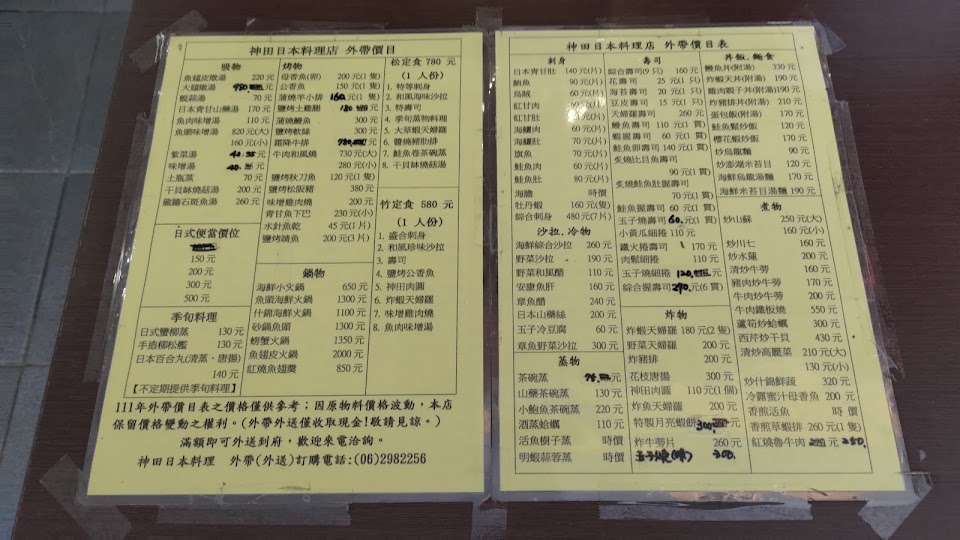 神田日本料理店 外帶價目
吸物
魚翅皮燉湯 220 元
大翅燉湯 980 元
蜆蒜湯 70 元
日本青甘山藥湯 170 元
魚肉味增湯 110 元
魚頭味增湯 820 元(大)
160 元(小)
紫菜湯 40 元
味增湯 40 元
土瓶蒸 70 元
干貝缽燒菇湯 200 元
龍膽石斑魚湯 260 元
日式便當價位
150 元
200 元
300 元
500 元
季旬料理
日式蠻柳蒸 130 元
手造柳松艦 130 元
日本百合丸(清蒸、唐揚)
140 元
【不定期提供季旬料理】
烤物
母香魚(卵) 200 元(1 隻)
公香魚 150 元(1 隻)
蒲燒羊小排 160 元(1 隻)
鹽烤土雞腿 180 元
蒲燒鰻魚 300 元
鹽烤軟絲 300 元
霜降牛排 780 元
牛肉和風燒 730 元(大)
280 元(小)
鹽烤秋刀魚 120 元(1 隻)
鹽烤松阪豬 380 元
味增雞肉燒 200 元
青甘魚下巴 230 元(小)
水針魚乾 45 元(1 片)
鹽烤鯖魚 200 元(3 片)
鍋物
海鮮小火鍋 650 元
魚頭海鮮火鍋 1300 元
什錦海鮮火鍋 1100 元
砂鍋魚頭 1300 元
螃蟹火鍋 1350 元
魚翅皮火鍋 2000 元
紅燒魚翅羹 850 元
松定食 780 元
(1 人份)
1. 特等刺身
2. 和風海味沙拉
3. 特壽司
4. 季旬蒸物料理
5. 大草蝦天婦羅
6. 鹽燒豬肋排
7. 鮭魚卷茶碗蒸
8. 干貝缽燒菇湯
竹定食 580 元
(1 人份)
1. 盛合刺身
2. 和風珍味沙拉
3. 壽司
4. 鹽烤公香魚
5. 神田肉圓
6. 炸蝦天婦羅
7. 味增雞肉燒
8. 魚肉味增湯
111年外帶價目表之價格僅供參考；因原物料價格波動，本店
保留價格變動之權利。(外帶外送僅收取現金!敬請見諒。)
滿額即可外送到府，歡迎來電洽詢。
神田日本料理 外帶(外送)訂購電話:(06)2982256
神田日本料理店 外帶價目表
刺身
日本青甘肚 140 元(片)
鮪魚 90 元(片)
烏賊 60 元(片)
紅甘肉 60 元(片)
紅甘肚 60 元(片)
海鱺肉 60 元(片)
海鱺肚 70 元(片)
旗魚 70 元(片)
鮭魚肉 60 元(片)
鮭魚肚 80 元(片)
海膽 時價
牡丹蝦 160 元(隻)
綜合刺身 480 元(7片)
沙拉、冷物
海鮮綜合沙拉 260 元
野菜沙拉 190 元
野菜和風醋 110 元
安康魚肝 110 元
章魚醋 240 元
日本山藥絲 200 元
玉子冷豆腐 60 元
章魚野菜沙拉 300 元
蒸物
茶碗蒸 元
山藥茶碗蒸 130 元
小鮑魚茶碗蒸 220 元
酒蒸蛤蠣 110 元
活魚樹子蒸 時價
明蝦蒜蓉蒸 時價
壽司
綜合壽司(9 只) 160 元
花壽司 25 元(1 只)
海苔壽司 20 元(1 只)
豆皮壽司 15 元(1 只)
天婦羅壽司 260 元
鰻魚壽司 110 元(1 貫)
蝦握壽司 60 元(1 貫)
鮭魚卵壽司 140 元(1貫)
炙燒比目魚壽司
90 元(1 貫)
炙燒鮭魚肚握壽司
70 元(1 貫)
鮭魚握壽司 60 元(1 貫)
玉子燒壽司 60 元(1 貫)
小黃瓜細捲 110 元
鐵火捲壽司 170 元
肉鬆細捲 110 元
玉子燒細捲 120 元
綜合握壽司 290 元(6 貫)
炸物
炸蝦天婦羅 180 元(2 隻)
野菜天婦羅 200 元
炸豬排 200 元
花枝唐揚 300 元
神田肉圓 110 元(1 個)
炸魚天婦羅 200 元
特製月亮蝦餅 300 元
炸牛蒡片 260 元
玉子燒(噴) 200.
丼飯、麵食
鰻魚丼(附湯) 330 元
炸蝦天丼(附湯) 210 元
雞肉親子丼(附湯)190 元
炸豬排丼(附湯) 210 元
蛋包飯(附湯) 170 元
鮭魚鬆炒飯 170 元
櫻花蝦炒飯 170 元
炒烏龍麵 190 元
炒澎湖米苔目 120 元
海鮮烏龍湯麵 170 元
海鮮米苔目湯麵 190 元
煮物
炒山蘇 250 元(大)
160 元(小)
炒川七 140 元
炒水蓮 200 元
清炒牛蒡 160 元
豬肉炒牛蒡 170 元
牛肉炒牛蒡 200 元
牛肉鐵板燒 550 元
蘆筍炒蛤蠣 300 元
西芹炒干貝 430 元
清炒高麗菜 210 元(大)
130 元(小)
炒什錦鮮蔬 320 元
冷露蜜汁母香魚 200 元
香煎活魚 時價
香煎草蝦排 260 元(1 隻)
紅燒魯牛肉 元 250.